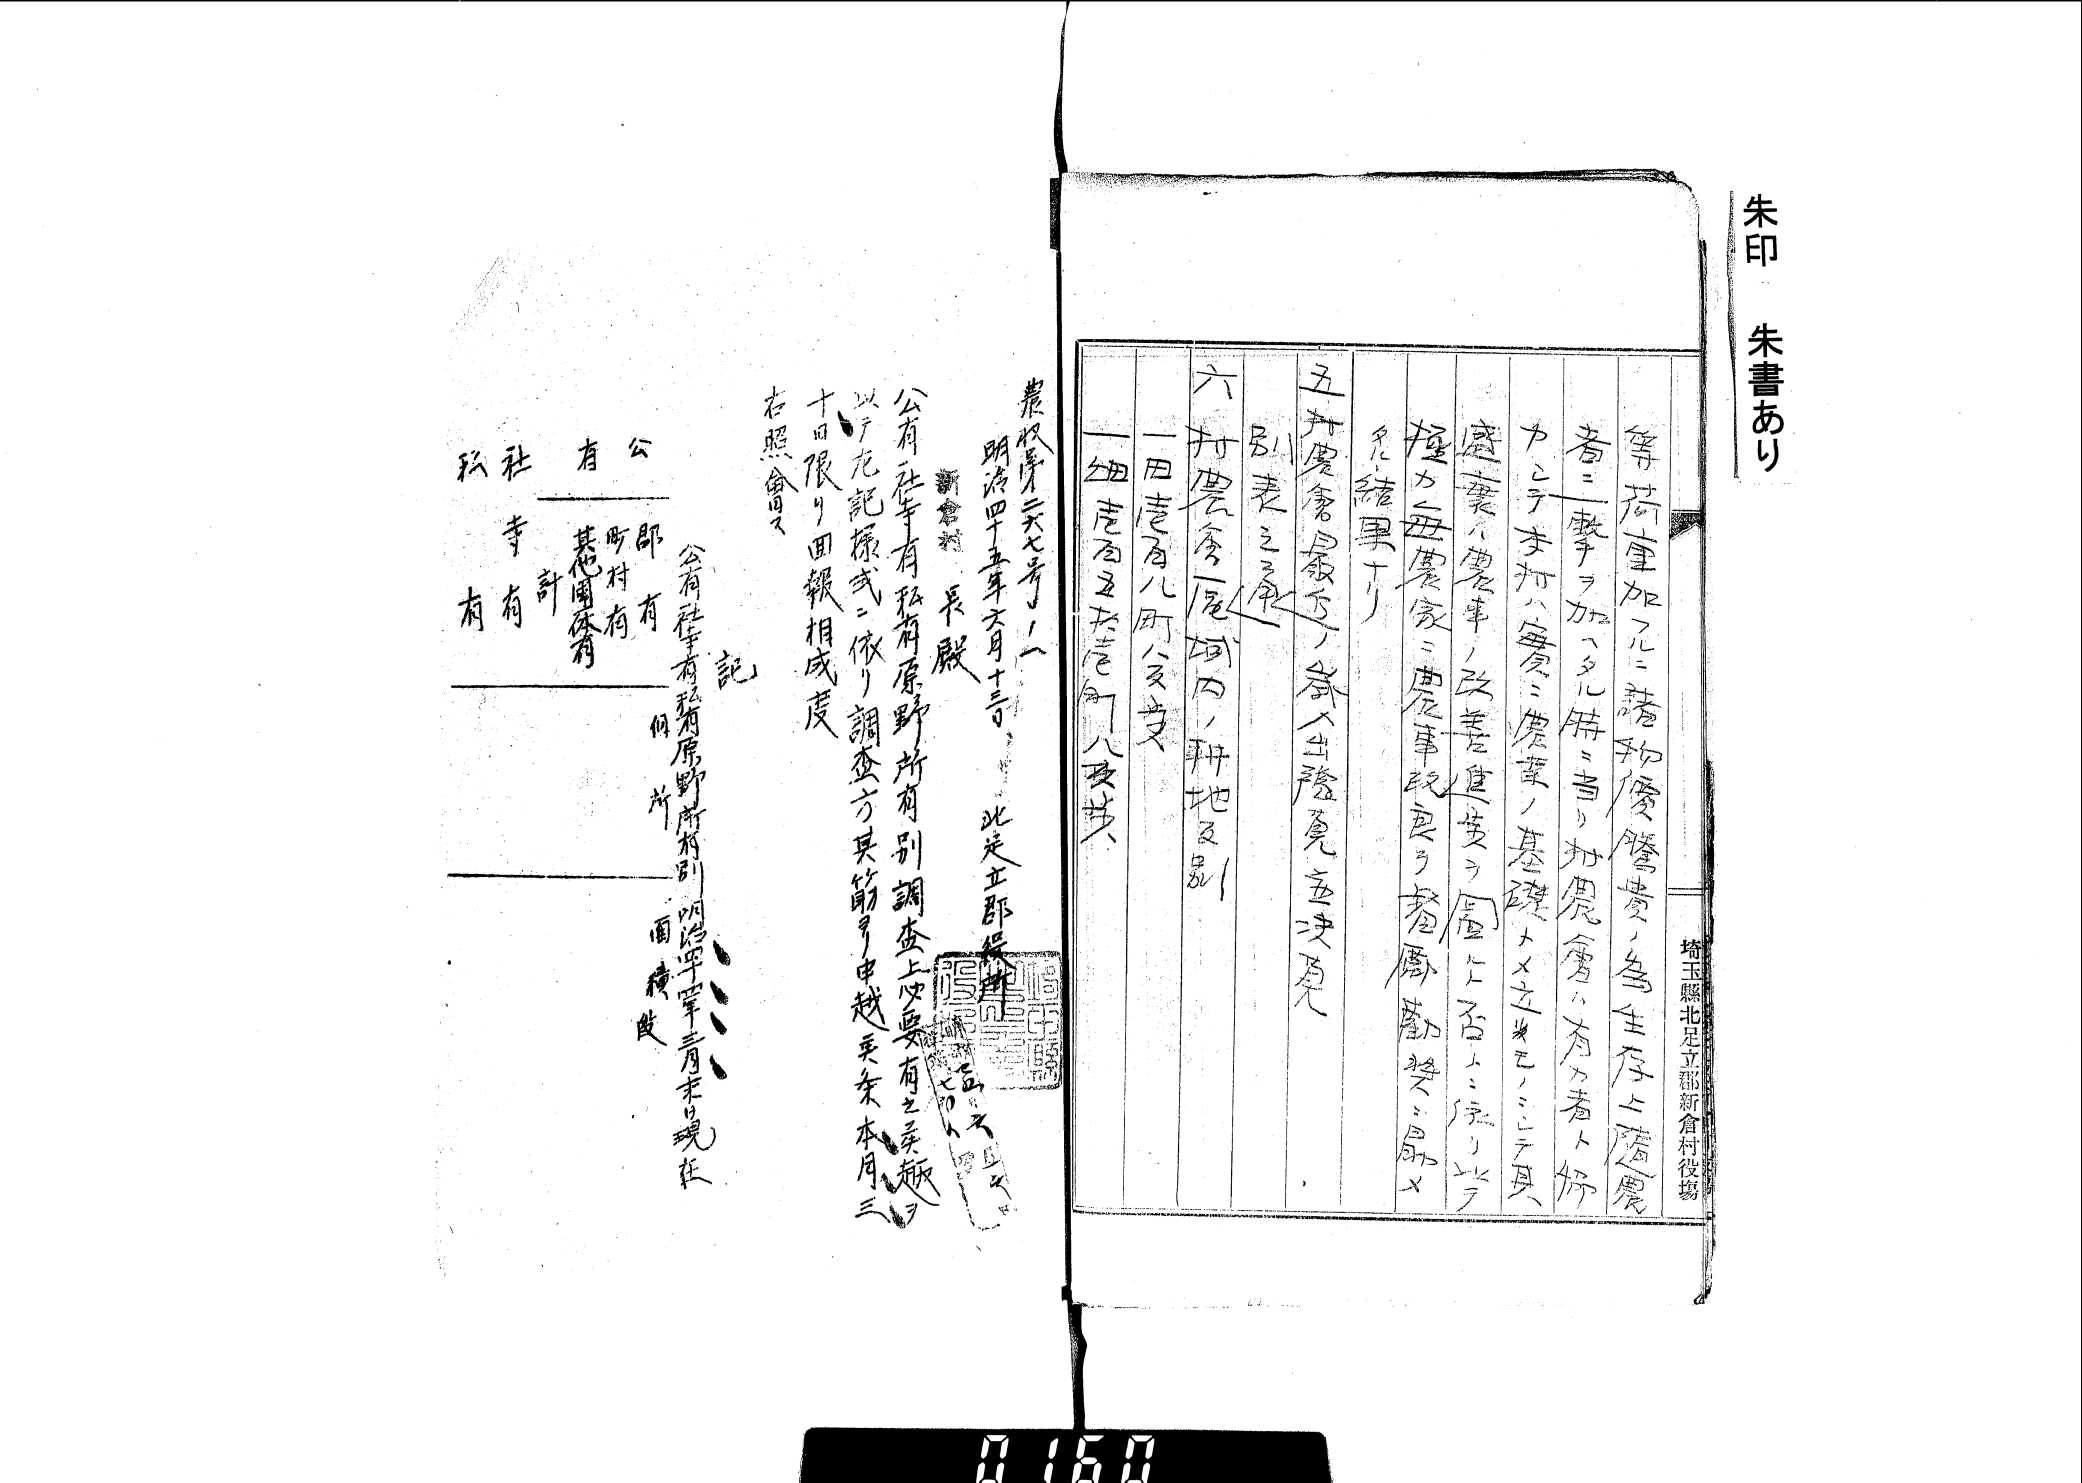 朱印 朱書あり
埼玉縣北足立郡新倉村役場
等荷重加フルニ諸物價騰貴ノ為生存上随農
者ニ一擊ヲ加ヘタル時ニ当リ村農會ハ有力者ト
カシテ本村ハ實ニ農業ノ基礎トメ立モノニシテ其
盛衰ハ農事ノ改善進ヲ圖ルト否トニ依リ以テ
極力毎農家ニ農事改良ヲ督勵勸奨ニ勗メ
タル結果ナリ
五 村農會最近ノ歳入出豫算並決算
別表之通
六 村農會區域内ノ耕地反別
一田壱百八町八反
一畑壱百五拾壱町八反
農收第二六七号ノ一
明治四十五年六月十三日 北足立郡役所
新倉村長殿
公有社寺有私有原野所有別調査上必要有之候趣ヲ
以テ左記様式ニ依リ調査方其筋ヨリ申越候条本月三
十日限リ回報相成度
右照會ス
記
公有社寺有私有原野所有別 明治四十五年三月末日現在
個所 面積
公有
郡有
町村有
其他團体有
計
社寺有
私有
0160